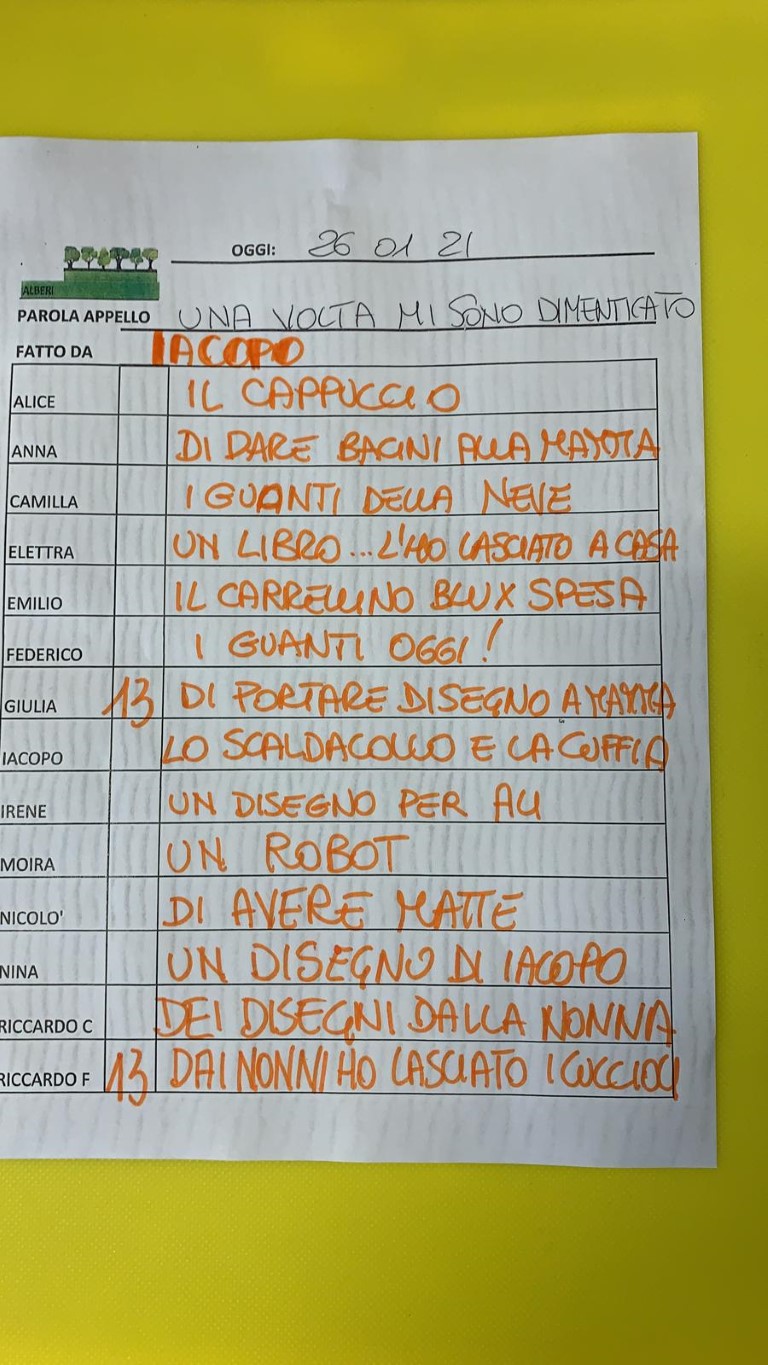 OGGI: 26 01 21
ALBERI
PAROLA APPELLO UNA VOLTA MI SONO DIMENTICATO
FATTO DA IACOPO
ALICE IL CAPPUCCIO
ANNA DI DARE BACINI ALLA
CAMILLA I GUANTI DELLA NEVE
ELETTRA UN LIBRO... L'HO LASCIATO A CASA
EMILIO IL CARRELLINO BLU X SPESA
FEDERICO I GUANTI OGGI!
GIULIA 13 DI PORTARE DISEGNO A
IACOPO LO SCALDACOLLO E LA CUFFIA
IRENE UN DISEGNO PER ALI
MOIRA UN ROBOT
NICOLO' DI AVERE MATTE
NINA UN DISEGNO DI IACOPO
RICCARDO C DEI DISEGNI DALLA NONNA
RICCARDO F 13 DAI NONNI HO LASCIATO I CUCCIOLI